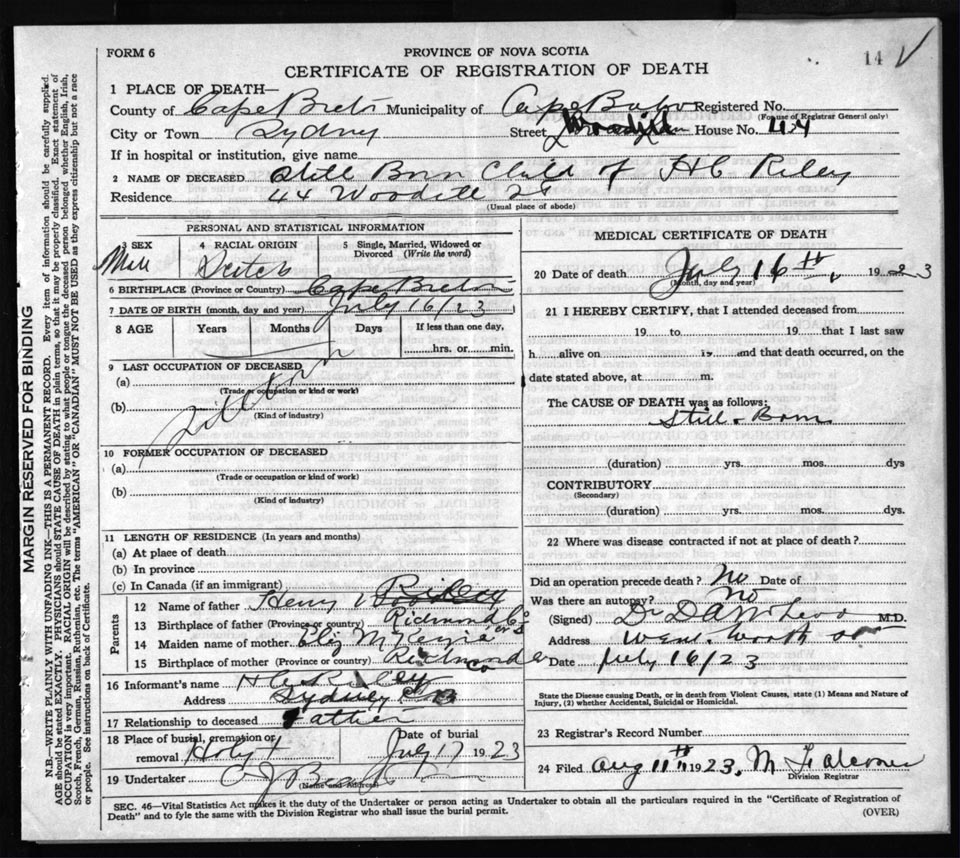 FORM 6
PROVINCE OF NOVA SCOTIA
14
CERTIFICATE OF REGISTRATION OF DEATH
1 PLACE OF DEATH—
County of Cape Breton Municipality of Cape Breton Registered No.
(For use of Registrar General only)
City or Town Sydney Street House No. 44
If in hospital or institution, give name
2 NAME OF DECEASED Still Born Child of H C Riley
Residence 44 Woodill St
(Usual place of abode)
PERSONAL AND STATISTICAL INFORMATION
3 SEX 4 RACIAL ORIGIN 5 Single, Married, Widowed or Divorced (Write the word)
Male
6 BIRTHPLACE (Province or Country) Cape Breton
7 DATE OF BIRTH (month, day and year) July 16/23
8 AGE Years Months Days If less than one day,
hrs. or min.
9 LAST OCCUPATION OF DECEASED
(a)
(Trade or occupation or kind or work)
(b)
(Kind of industry)
10 FORMER OCCUPATION OF DECEASED
(a)
(Trade or occupation or kind of work)
(b)
(Kind of industry)
11 LENGTH OF RESIDENCE (In years and months)
(a) At place of death
(b) In province
(c) In Canada (if an immigrant)
Parents
12 Name of father Henry Riley
13 Birthplace of father (Province or Country) Richmond Co
14 Maiden name of mother
15 Birthplace of mother (Province or country) Richmond Co
16 Informant's name H C Riley
Address Sydney CB
17 Relationship to deceased Father
18 Place of burial, cremation or removal
Date of burial July 17 1923
19 Undertaker
(Name and Address)
MEDICAL CERTIFICATE OF DEATH
20 Date of death July 16th 1923
(Month, day and year)
21 I HEREBY CERTIFY, that I attended deceased from
19 to 19 that I last saw
h alive on 19 and that death occurred, on the
date stated above, at m.
The CAUSE OF DEATH was as follows:
Still-Born
(duration) yrs. mos. dys
CONTRIBUTORY
(Secondary)
(duration) yrs. mos. dys.
22 Where was disease contracted if not at place of death?
Did an operation precede death? No Date of
Was there an autopsy? No
(Signed) Dr M.D.
Address
Date July 16/23
State the Disease causing Death, or in death from Violent Causes, state (1) Means and Nature of Injury, (2) whether Accidental, Suicidal or Homicidal.
23 Registrar's Record Number
24 Filed Aug 11th 1923,
Division Registrar
SEC. 46—Vital Statistics Act makes it the duty of the Undertaker or person acting as Undertaker to obtain all the particulars required in the "Certificate of Registration of
Death" and to fyle the same with the Division Registrar who shall issue the burial permit.
(OVER)
MARGIN RESERVED FOR BINDING
N.B.—WRITE PLAINLY WITH UNFADING INK—THIS IS A PERMANENT RECORD. Every item of information should be carefully supplied.
AGE should be stated EXACTLY. PHYSICIANS should STATE CAUSE OF DEATH in plain terms, so that it may be properly classified. Exact statement of
OCCUPATION is very important. RACIAL ORIGIN will be described by stating to what people or tongue the deceased person belonged whether English, Irish,
Scotch, French, German, Russian, Ruthenian, etc. The terms "AMERICAN" OR "CANADIAN" MUST NOT BE USED as they express citizenship but not a race
or people. See instructions on back of Certificate.